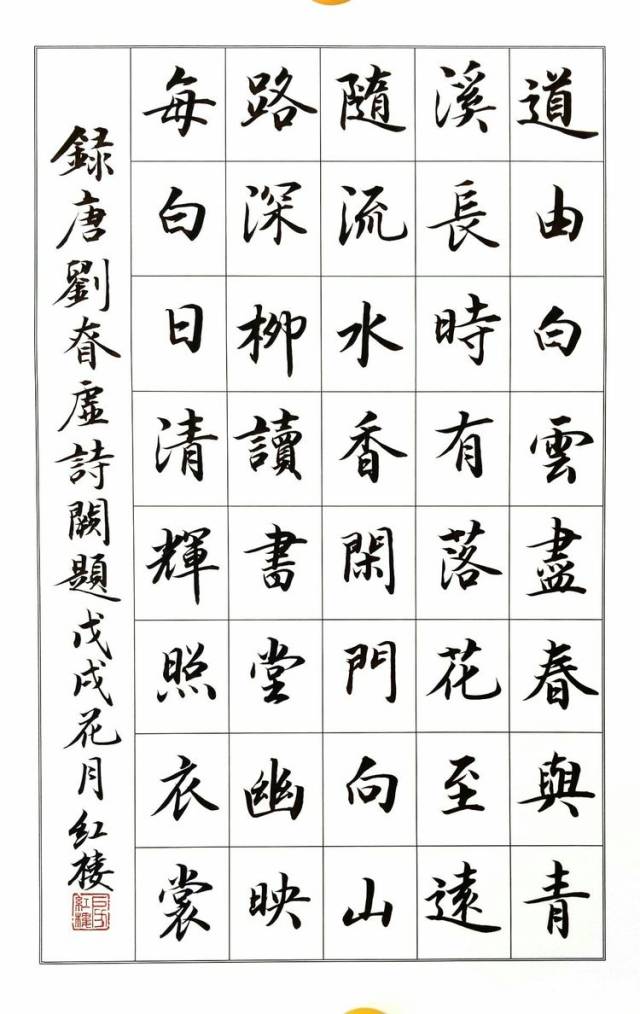 道由白雲盡春與青
溪長時有落花至遠
隨流水香閑門向山
路深柳讀書堂幽映
每白日清輝照衣裳
録唐劉眘虛詩闕題戊戌花月紅楼